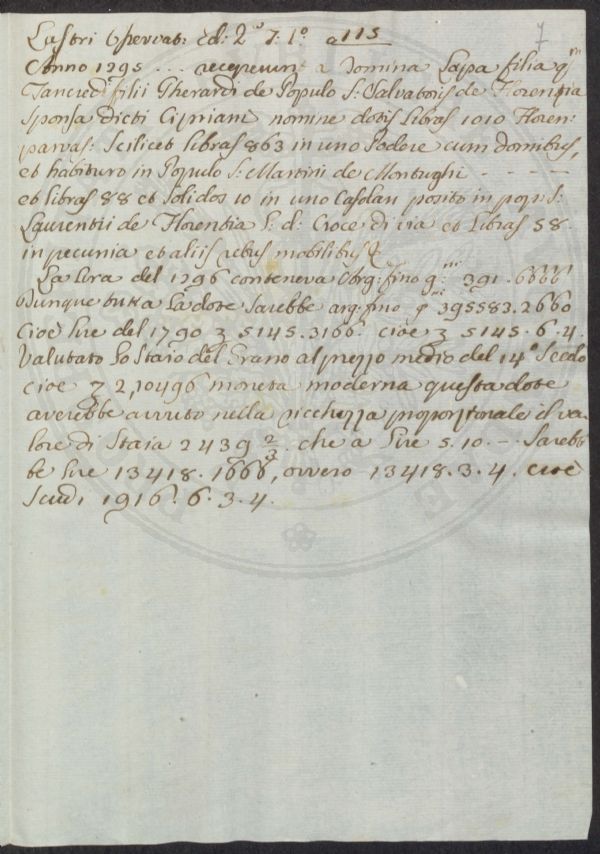 Lastri Osservat: ed: 2ª T: 1º a 115
7
Anno 1295 ... receperunt a Domina Lapa filia qm
Tancredi filii Gherardi de Populo S: Salvatoris de Florentia
Sponsa dicti Cipriani nomine dotis libras 1010 Floren:
parvas: Scilicet libras 863 in uno Podere cum domibus,
et habituro in Populo S: Martini de Montughi - - - -
et libras 88 et Solidos 10 in uno Casolari posito in pop: S:
Laurentii de Florentia l: d: Croce di via et Libras 58.
in pecunia et aliis rebus mobilibus &
La lira del 1296 conteneva Arg: fino gni 391.6666
Dunque tutta la dote sarebbe arg: fino gni 395583.2660
cioè lire del 1790 ʒ 5145.3166 cioè ʒ 5145.6.4.
Valutato lo Staio del Grano al prezzo medio del 14º Secolo
cioè ʒ 2,10496 moneta moderna questa dote
averebbe avuto nella ricchezza proporzionale il va-
lore di Staia 2439 2/3 che a lire 5.10.- Sareb-
be lire 13418.1666, ovvero 13418.3.4. cioè
Scudi 1916.6.3.4.